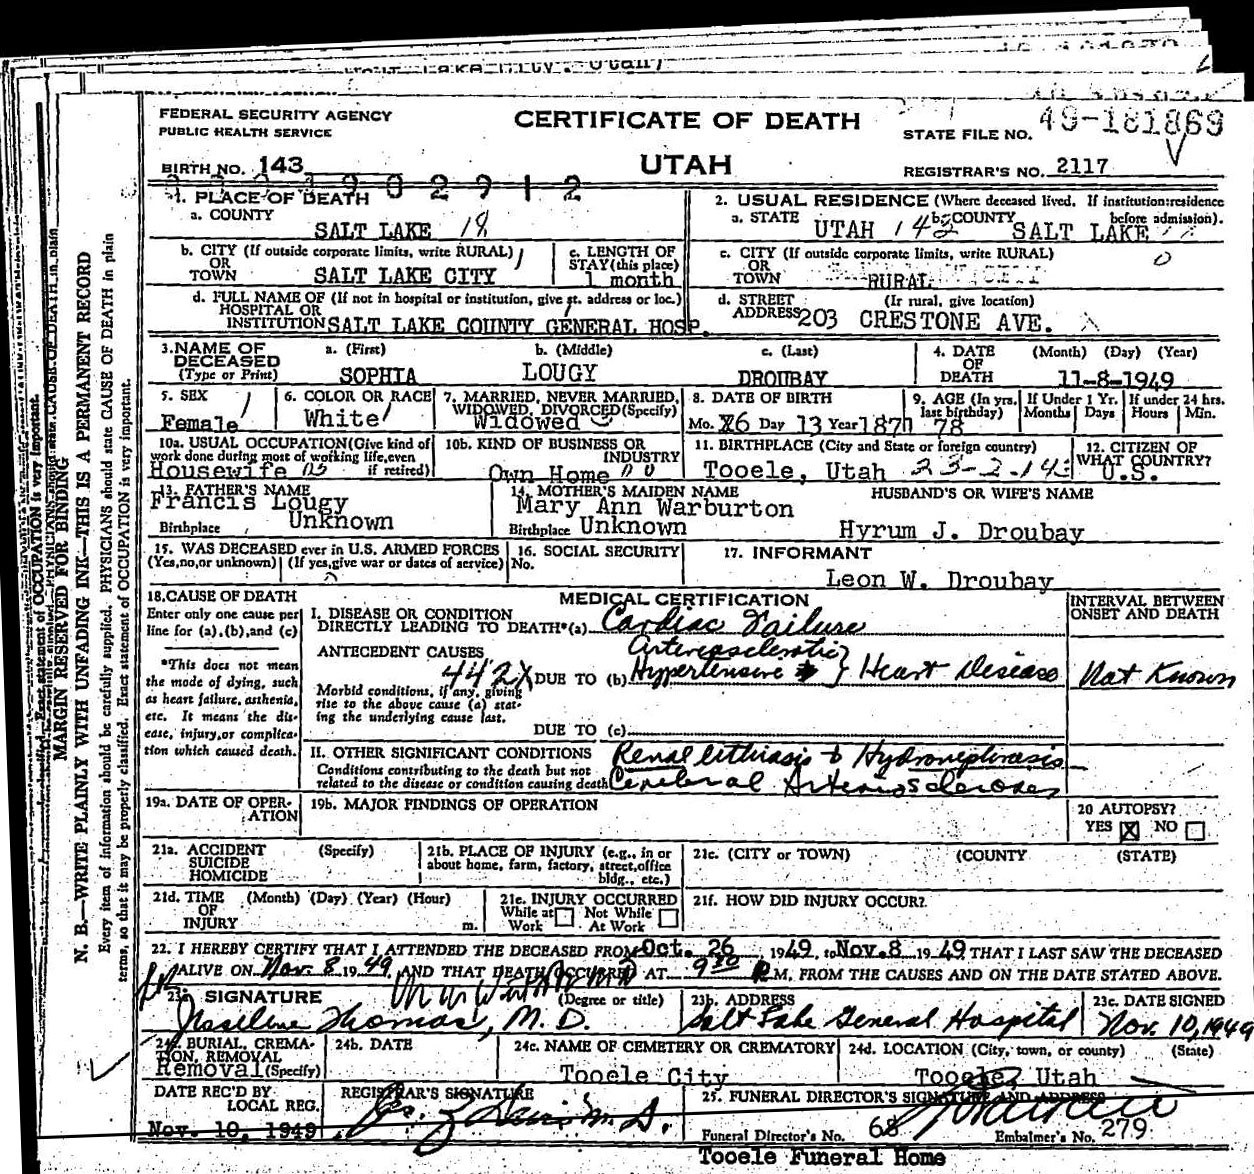 FEDERAL SECURITY AGENCY
PUBLIC HEALTH SERVICE
CERTIFICATE OF DEATH
STATE FILE NO. 49-181869
BIRTH NO. 143
UTAH
REGISTRAR'S NO. 2117
1902912
1. PLACE OF DEATH
a. COUNTY
SALT LAKE 18
2. USUAL RESIDENCE (Where deceased lived. If institution: residence before admission).
a. STATE UTAH 142 b. COUNTY SALT LAKE
b. CITY (If outside corporate limits, write RURAL)
OR
TOWN SALT LAKE CITY
c. LENGTH OF
STAY (this place)
1 month
c. CITY (If outside corporate limits, write RURAL)
OR
TOWN RURAL
0
d. FULL NAME OF (If not in hospital or institution, give st. address or loc.)
HOSPITAL OR
INSTITUTION SALT LAKE COUNTY GENERAL HOSP.
d. STREET (If rural, give location)
ADDRESS 203 CRESTONE AVE.
3. NAME OF
DECEASED
(Type or Print)
a. (First)
SOPHIA
b. (Middle)
LOUGY
c. (Last)
DROUBAY
4. DATE
OF
DEATH
(Month) (Day) (Year)
11-8-1949
5. SEX
Female
6. COLOR OR RACE
White
7. MARRIED, NEVER MARRIED,
WIDOWED, DIVORCED (Specify)
Widowed
8. DATE OF BIRTH
Mo. X6 Day 13 Year 1871
9. AGE (In yrs.
last birthday)
78
If Under 1 Yr.
Months Days
If under 24 hrs.
Hours Min.
10a. USUAL OCCUPATION (Give kind of
work done during most of working life, even
if retired)
Housewife
10b. KIND OF BUSINESS OR
INDUSTRY
Own Home
11. BIRTHPLACE (City and State or foreign country)
Tooele, Utah 23-2-14
12. CITIZEN OF
WHAT COUNTRY?
U.S.
13. FATHER'S NAME
Francis Lougy
Birthplace Unknown
14. MOTHER'S MAIDEN NAME
Mary Ann Warburton
Birthplace Unknown
HUSBAND'S OR WIFE'S NAME
Hyrum J. Droubay
15. WAS DECEASED ever in U.S. ARMED FORCES
(Yes, no, or unknown) (If yes, give war or dates of service)
16. SOCIAL SECURITY
No.
17. INFORMANT
Leon W. Droubay
18. CAUSE OF DEATH
Enter only one cause per
line for (a), (b), and (c)
*This does not mean
the mode of dying, such
as heart failure, asthenia,
etc. It means the dis-
ease, injury, or complica-
tion which caused death.
MEDICAL CERTIFICATION
INTERVAL BETWEEN
ONSET AND DEATH
I. DISEASE OR CONDITION
DIRECTLY LEADING TO DEATH*(a) Cardiac Failure
ANTECEDENT CAUSES
442X
Arteriosclerotic
DUE TO (b) Hypertensive } Heart Disease
Not Known
Morbid conditions, if any, giving
rise to the above cause (a) stat-
ing the underlying cause last.
DUE TO (c)
II. OTHER SIGNIFICANT CONDITIONS
Conditions contributing to the death but not
related to the disease or condition causing death
Renal lithiasis & Hydronephrosis
Cerebral Arteriosclerosis
19a. DATE OF OPER-
ATION
19b. MAJOR FINDINGS OF OPERATION
20 AUTOPSY?
YES X NO
21a. ACCIDENT
SUICIDE
HOMICIDE
(Specify)
21b. PLACE OF INJURY (e.g., in or
about home, farm, factory, street, office
bldg., etc.)
21c. (CITY or TOWN) (COUNTY) (STATE)
21d. TIME (Month) (Day) (Year) (Hour)
OF
INJURY m.
21e. INJURY OCCURRED
While at Work Not While At Work
21f. HOW DID INJURY OCCUR?
22. I HEREBY CERTIFY THAT I ATTENDED THE DECEASED FROM Oct. 26 1949, to Nov. 8 1949 THAT I LAST SAW THE DECEASED
ALIVE ON Nov. 8 1949, AND THAT DEATH OCCURRED AT 9:30 P.M. FROM THE CAUSES AND ON THE DATE STATED ABOVE.
23a. SIGNATURE (Degree or title)
Thomas, M.D.
23b. ADDRESS
Salt Lake General Hospital
23c. DATE SIGNED
Nov. 10, 1949
24a. BURIAL, CREMA-
TION, REMOVAL
(Specify)
Removal
24b. DATE
24c. NAME OF CEMETERY OR CREMATORY
Tooele City
24d. LOCATION (City, town, or county) (State)
Tooele, Utah
DATE REC'D BY
LOCAL REG.
Nov. 10, 1949
REGISTRAR'S SIGNATURE
25. FUNERAL DIRECTOR'S SIGNATURE AND ADDRESS
Funeral Director's No. 68 Embalmer's No. 279
Tooele Funeral Home
MARGIN RESERVED FOR BINDING
N. B.—WRITE PLAINLY WITH UNFADING INK—THIS IS A PERMANENT RECORD
Every item of information should be carefully supplied. PHYSICIANS should state CAUSE OF DEATH in plain
terms, so that it may be properly classified. Exact statement of OCCUPATION is very important.